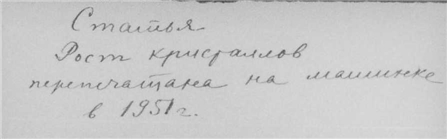 Статья
Рост кристаллов
перепечатана на машинке
в 1951г.